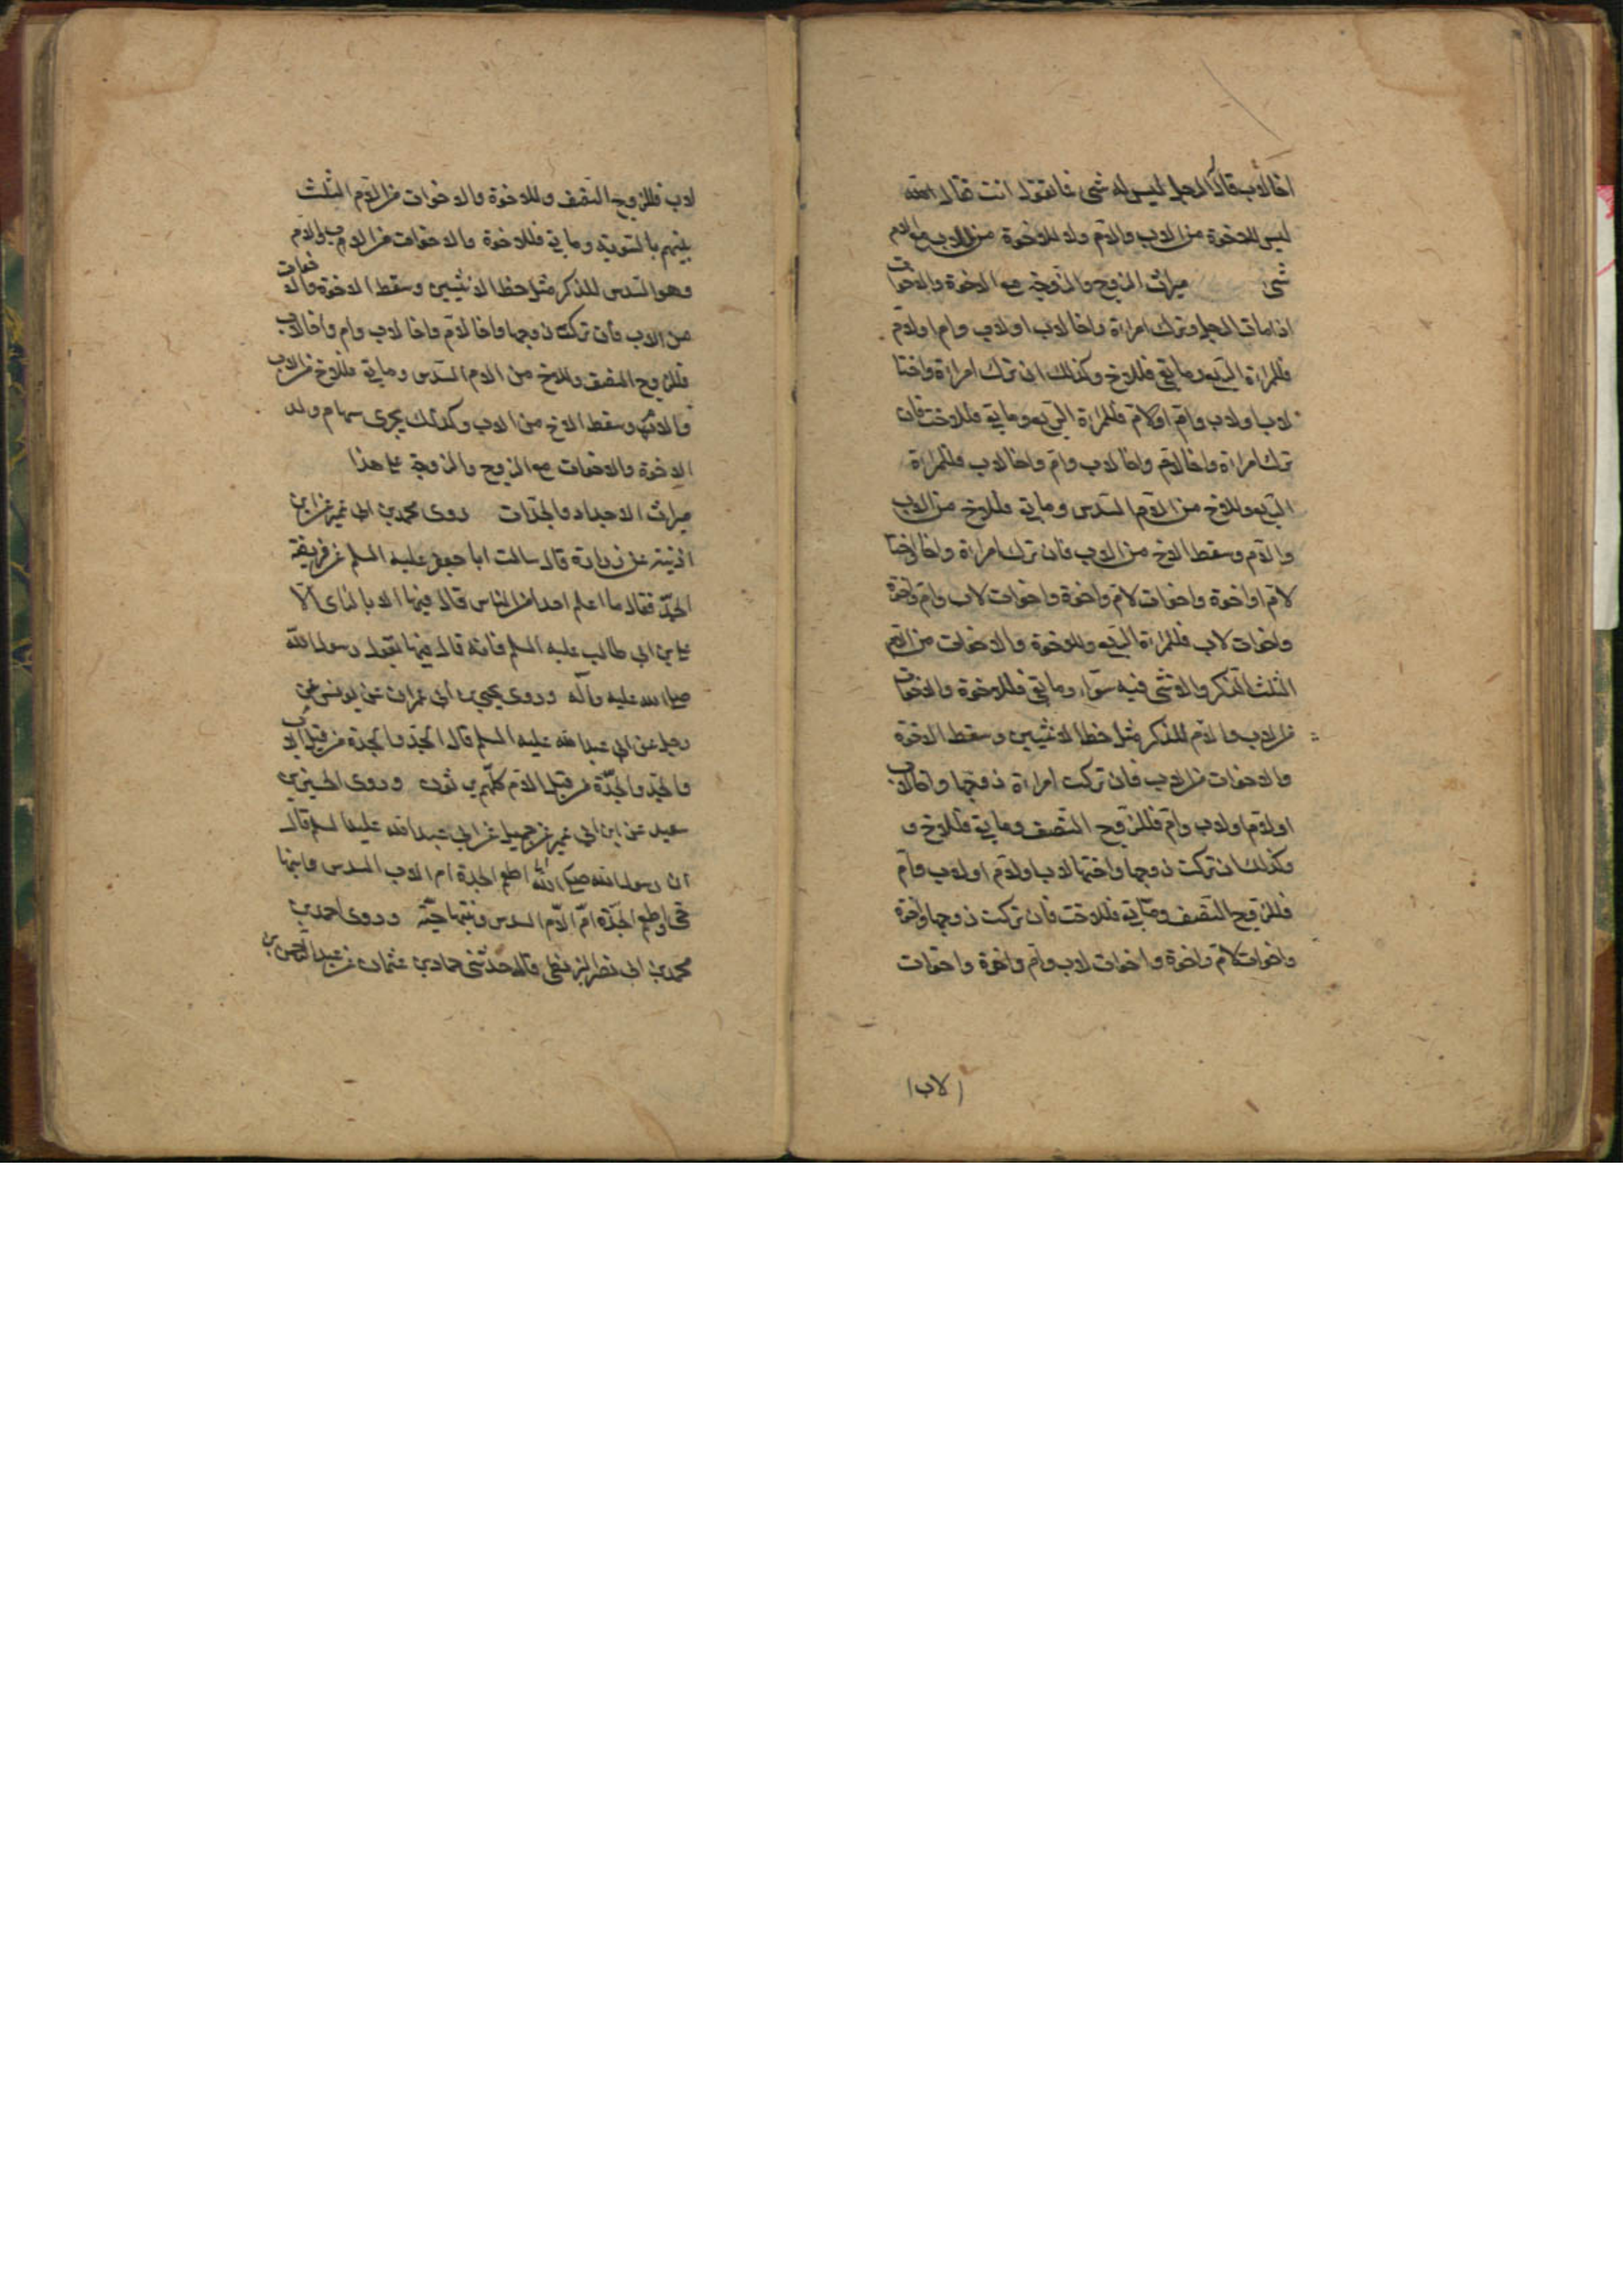 اخا لأب قال الرجل ليس له شئ فما تقول انت فقال اعطه
ليس للاخوة من الاب والام ولا للاخوة من الاب مع الام
شئ ميراث الزوج والزوجة مع الاخوة والاخوات
اذا مات الرجل وترك امراة واخا لاب او لاب وام او لام
فللمراة الربع وما بقى فللاخ وكذلك ان ترك امراة واختا
لاب او لاب وام او لام فللمراة الربع وما بقى فللاخت فان
ترك امراة واخا لام واخا لاب وام واخا لاب فللمراة
الربع وللاخ من الام السدس وما بقى فللاخ من الاب
والام وسقط الاخ من الاب فان ترك امراة واخا او اختا
لام او اخوة واخوات لام واخوة واخوات لاب وام واخوة
واخوات لاب فللمراة الربع وللاخوة والاخوات من الام
الثلث الذكر والانثى فيه سواء وما بقى فللاخوة والاخوات
من الاب والام للذكر مثل حظ الانثيين وسقط الاخوة
والاخوات من الاب فان تركت امراة زوجها واخا لاب
او لام او لاب وام فللزوج النصف وما بقى فللاخ و
كذلك ان تركت زوجها واختها لاب او لام او لاب وام
فللزوج النصف وما بقى فللاخت فان تركت زوجها واخوة
واخوات لام واخوة واخوات لاب وام واخوة واخوات
لاب
لاب فللزوج النصف وللاخوة والاخوات من الام الثلث
بينهم بالسوية وما بقى فللاخوة والاخوات من الاب والام
وهو السدس للذكر مثل حظ الانثيين وسقط الاخوة والاخوات
من الاب فان تركت زوجها واخا لام واخا لاب وام واخا لاب
فللزوج النصف وللاخ من الام السدس وما بقى فللاخ من الاب
والام وسقط الاخ من الاب وكذلك يجرى سهام ولد
الاخوة والاخوات مع الزوج والزوجة على هذا
ميراث الاجداد والجدات روى محمد بن ابى عمير عن ابن
اذينة عن زرارة قال سالت ابا جعفر عليه السلم عن فريضة
الجد فقال ما اعلم احدا من الناس قال فيها الا بالراى الا
على بن ابى طالب عليه السلم فانه قال فيها بقول رسول الله
صلى الله عليه وآله وروى يحيى بن ابى عمران عن يونس عن
رجل عن ابى عبد الله عليه السلم قال الجد والجدة من قبل الاب
والجد والجدة من قبل الام كلهم يرثون وروى الحسن بن
سعيد عن ابن ابى عمير عن جميل عن ابى عبد الله عليه السلم قال
ان رسول الله صلى الله اطعم الجدة ام الاب السدس وابنها
حى واطعم الجدة ام الام السدس وبنتها حية وروى احمد بن
محمد بن ابى نصر البزنطى قال حدثنى حماد بن عثمان عن عبد الرحمن بن